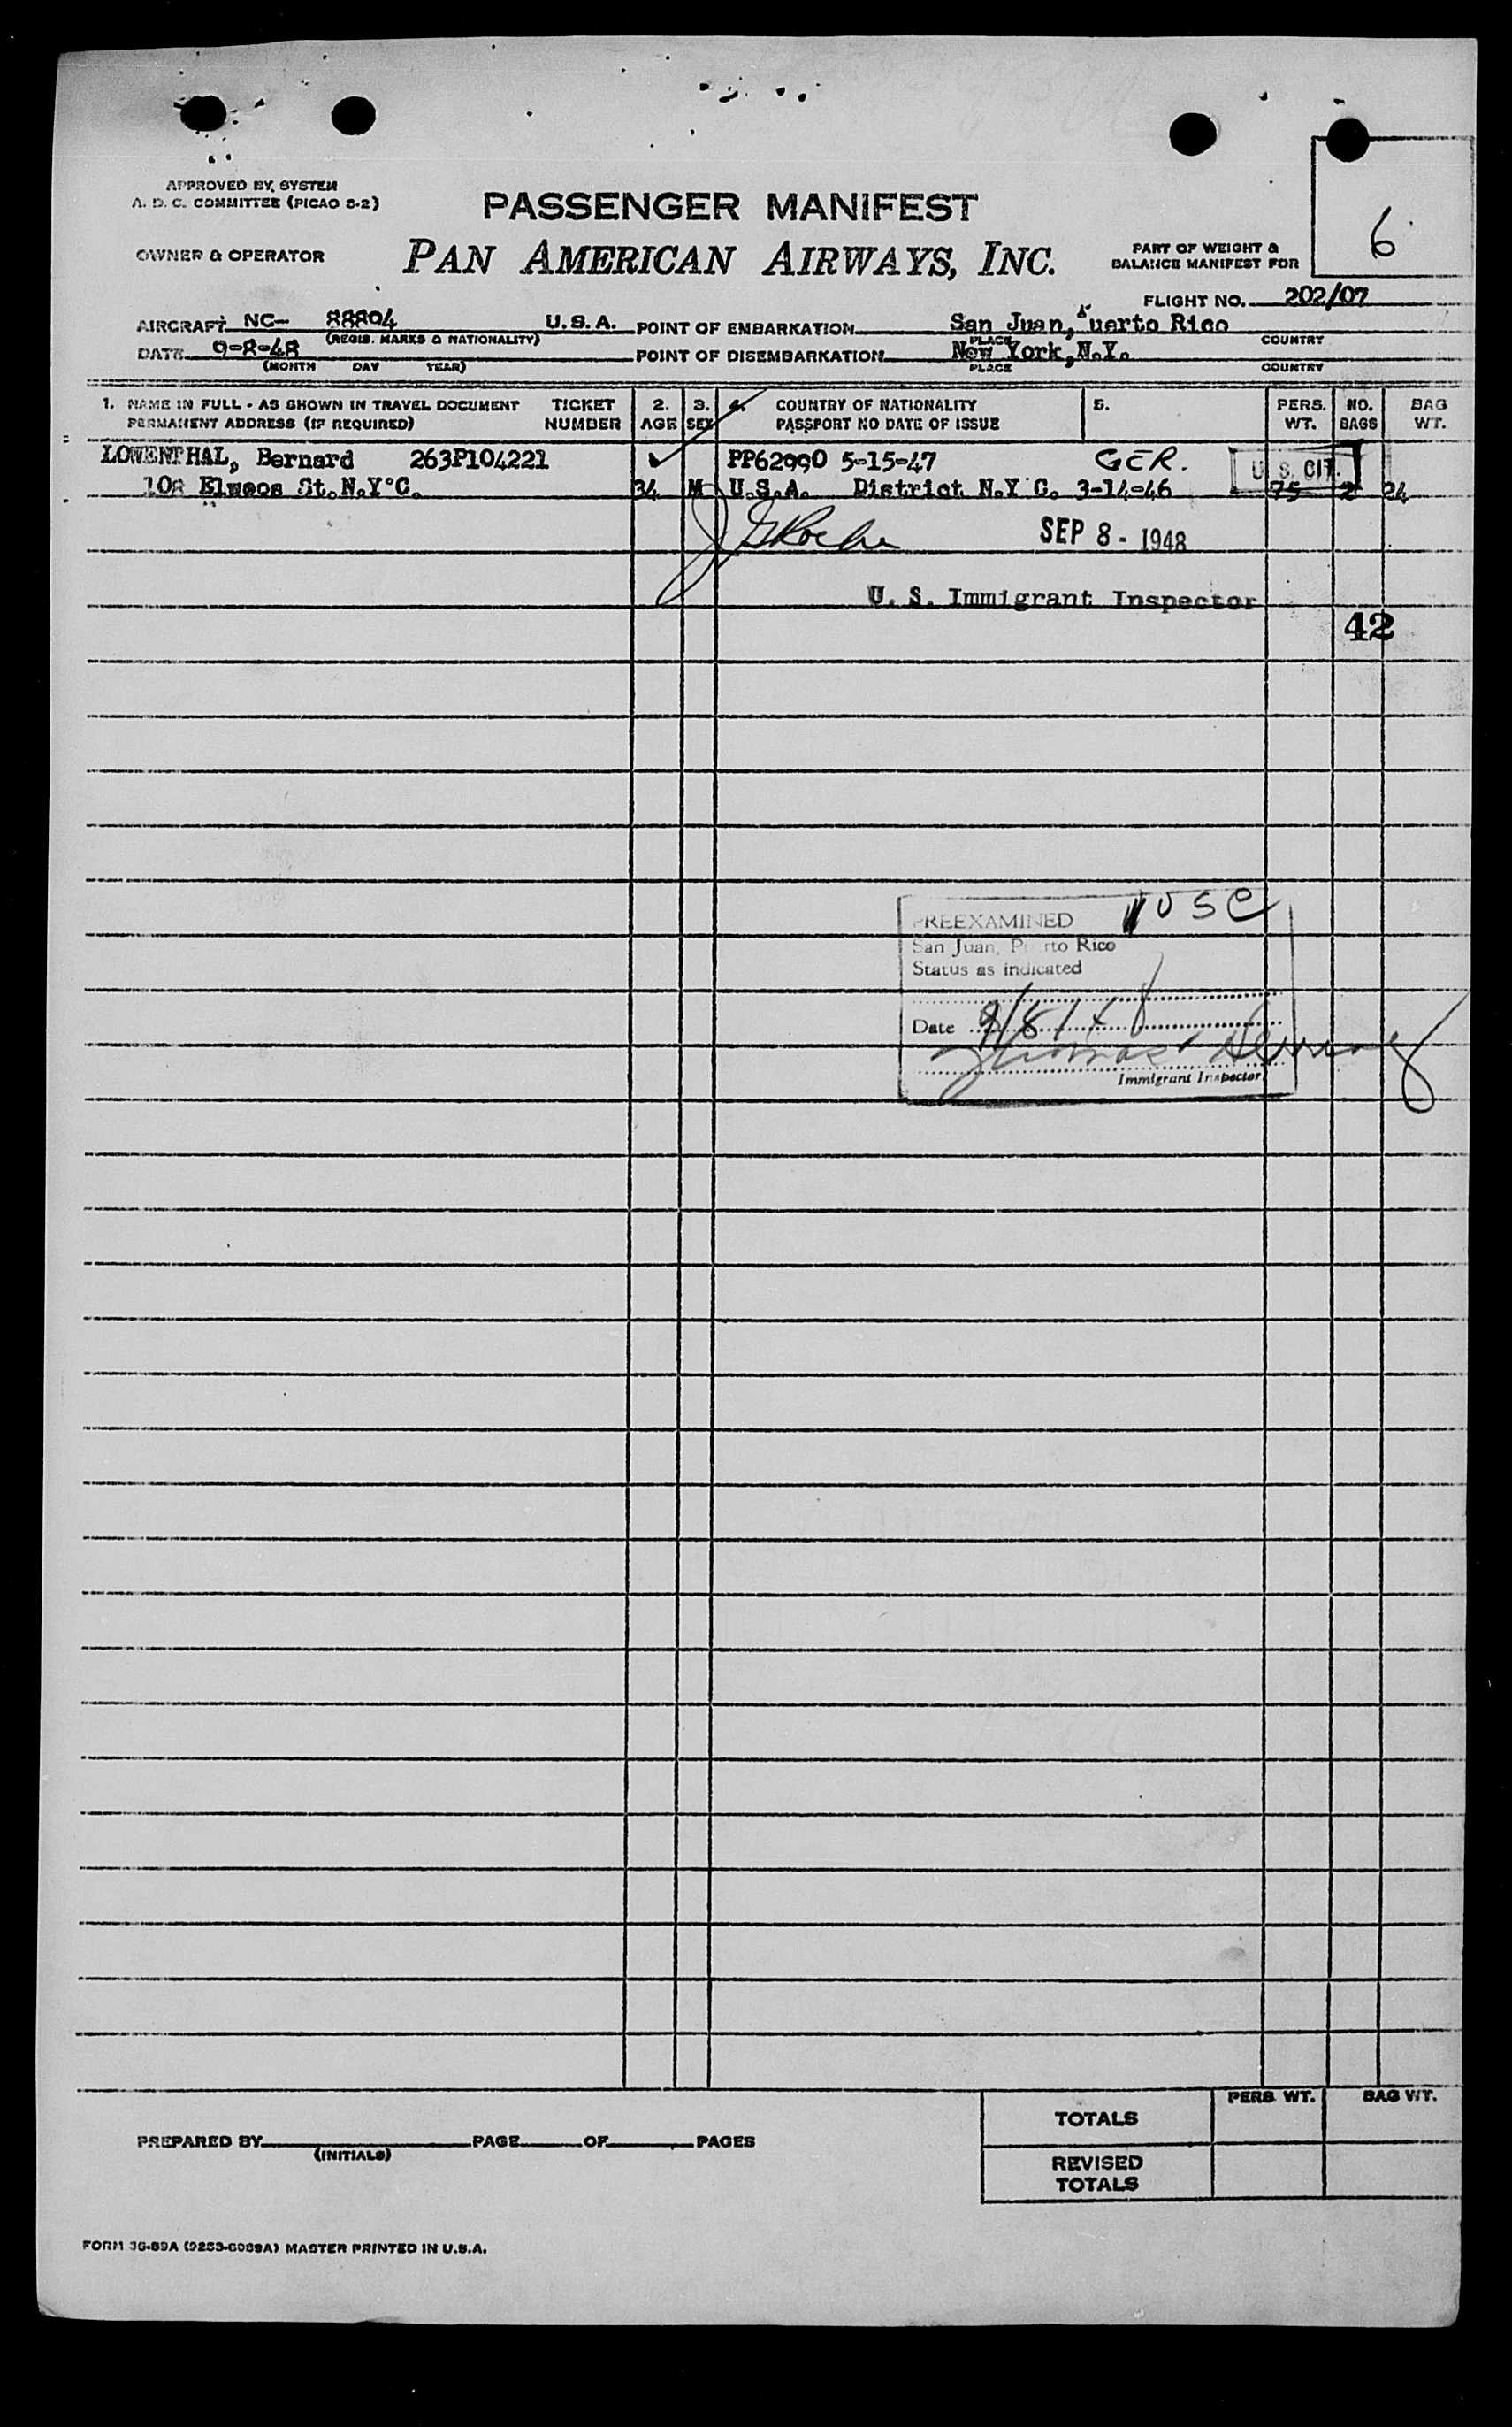 APPROVED BY SYSTEM
A. D. C. COMMITTEE (PICAO S-2)
PASSENGER MANIFEST
6
OWNER & OPERATOR
PAN AMERICAN AIRWAYS, INC.
PART OF WEIGHT &
BALANCE MANIFEST FOR
FLIGHT NO. 202/07
AIRCRAFT NC- 88804 U.S.A. POINT OF EMBARKATION San Juan, Puerto Rico
(REGIS. MARKS & NATIONALITY) PLACE COUNTRY
DATE 9-8-48 POINT OF DISEMBARKATION New York, N.Y.
(MONTH DAY YEAR) PLACE COUNTRY
1. NAME IN FULL - AS SHOWN IN TRAVEL DOCUMENT TICKET 2. 3. 4. COUNTRY OF NATIONALITY 5. PERS. NO. BAG
PERMANENT ADDRESS (IF REQUIRED) NUMBER AGE SEX PASSPORT NO DATE OF ISSUE WT. BAGS WT.
LOWENTHAL, Bernard 263P104221 PP62990 5-15-47 GER. U. S. CIT.
St. N.Y.C. 34 M U.S.A. District N.Y C. 3-14-46 75 2 24
SEP 8 - 1948
U. S. Immigrant Inspector
42
PREEXAMINED 1 USC
San Juan, Puerto Rico
Status as indicated
Date 9/8/48
Thomas
Immigrant Inspector
TOTALS PERS. WT. BAG WT.
PREPARED BY PAGE OF PAGES
(INITIALS)
REVISED
TOTALS
FORM 36-89A (9253-6089A) MASTER PRINTED IN U.S.A.